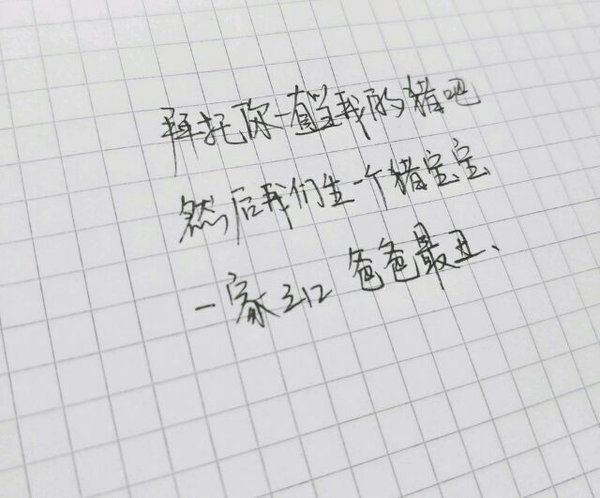 拜托你一直当我的猪吧
然后我们生一个猪宝宝
一家三口 爸爸最丑、